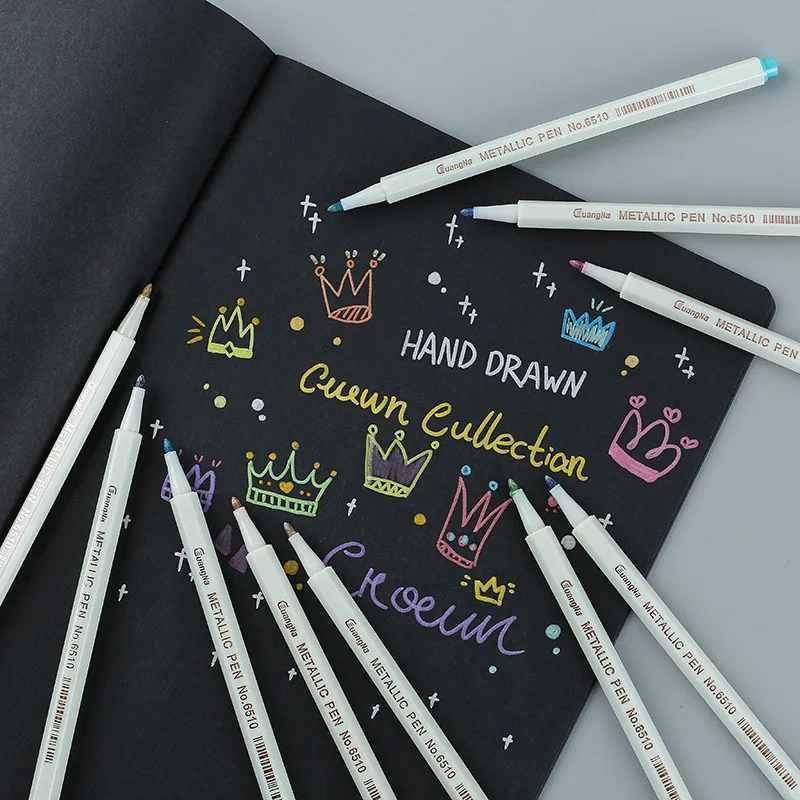 GuangNa METALLIC PEN No.6510
GuangNa METALLIC PEN No.6510
GuangNa METALLIC PEN
HAND DRAWN
Cuewn Cullection
Croeun
METALLIC PEN No.6510
GuangNa METALLIC PEN No.6510
GuangNa METALLIC PEN No.6510
GuangNa METALLIC PEN No.6510
GuangNa METALLIC PEN No.6510
GuangNa METALLIC PEN No.6510
GuangNa METALLIC PEN No.6510